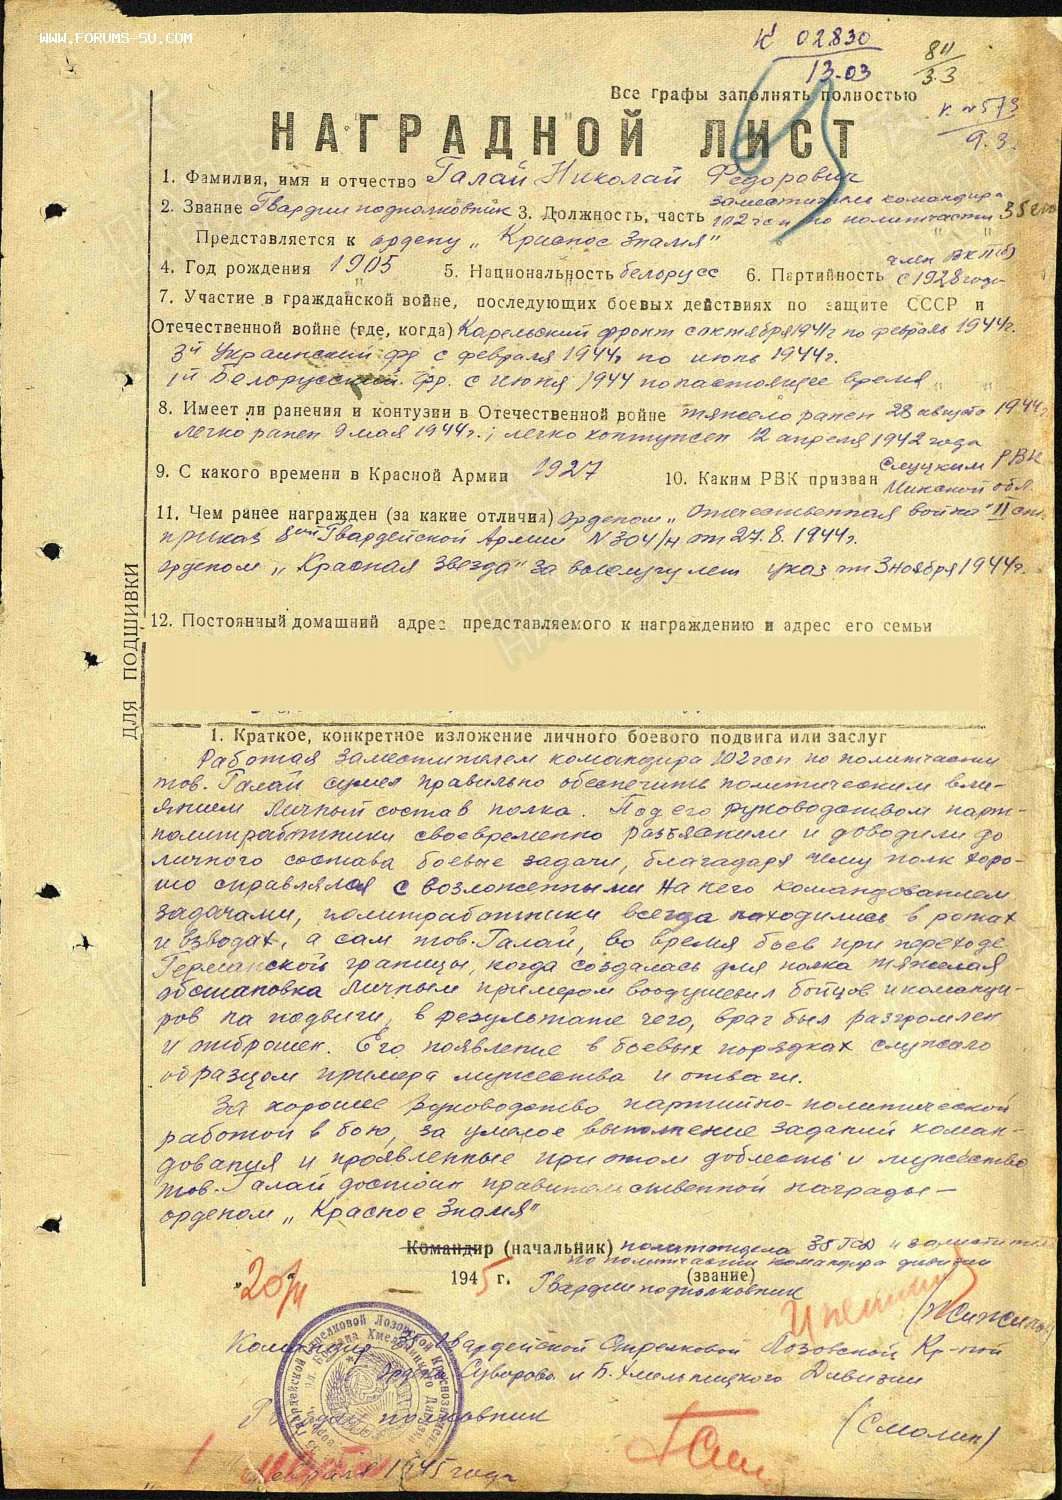 WWW.FORUMS-SU.COM
К 02830
13.03
811
3.3
К №573
9.3.
Все графы заполнять полностью
НАГРАДНОЙ ЛИСТ
1. Фамилия, имя и отчество Галай Николай Федорович
2. Звание Гвардии подполковник 3. Должность, часть заместитель командира
102 гсп по политчасти 35 гсд
Представляется к ордену „Красное Знамя"
4. Год рождения 1905 5. Национальность белорусс 6. Партийность член ВКП(б)
с 1928 года
7. Участие в гражданской войне, последующих боевых действиях по защите СССР и
Отечественной войне (где, когда) Карельский фронт с октября 1941г по февраль 1944г.
3й Украинский фр с февраля 1944г по июнь 1944г.
1й Белорусский фр. с июня 1944 по настоящее время
8. Имеет ли ранения и контузии в Отечественной войне тяжело ранен 28 августа 1944г.
легко ранен 9 мая 1944г.; легко контужен 12 апреля 1942 года
9. С какого времени в Красной Армии 1927 10. Каким РВК призван Слуцким РВК
Минской обл.
11. Чем ранее награжден (за какие отличия) орденом „Отечественная война" II ст.
приказ 8ой Гвардейской Армии N 304/н от 27.8.1944г.
орденом „Красная Звезда" за выслугу лет указ от 3 ноября 1944г.
12. Постоянный домашний адрес представляемого к награждению и адрес его семьи
ДЛЯ ПОДШИВКИ
1. Краткое, конкретное изложение личного боевого подвига или заслуг
Работая заместителем командира 102 гсп по политчасти
тов. Галай сумел правильно обеспечить политическим вли-
янием личный состав полка. Под его руководством парт-
политработники своевременно разъясняли и доводили до
личного состава боевые задачи, благодаря чему полк хоро-
шо справлялся с возложенными на него командованием
задачами, политработники всегда находились в ротах
и взводах, а сам тов. Галай, во время боев при переходе
Германской границы, когда создалась для полка тяжелая
обстановка личным примером воодушевил бойцов и команди-
ров на подвиги, в результате чего, враг был разгромлен
и отброшен. Его появление в боевых порядках служило
образцом примера мужества и отваги.
За хорошее руководство партийно-политической
работой в бою, за умелое выполнение заданий коман-
дования и проявленные при этом доблесть и мужество
тов. Галай достоин правительственной награды —
орденом „Красное Знамя"
Командир (начальник) политотдела 35 ГСД и заместитель
по политчасти командира дивизии
1945 г. (звание)
Гвардии подполковник
Командир 35 Гвардейской Стрелковой Лозовской Кр-ной
Ордена Суворова и Б. Хмельницкого Дивизии
Гвардии полковник (Смолин)
февраля 1945 года